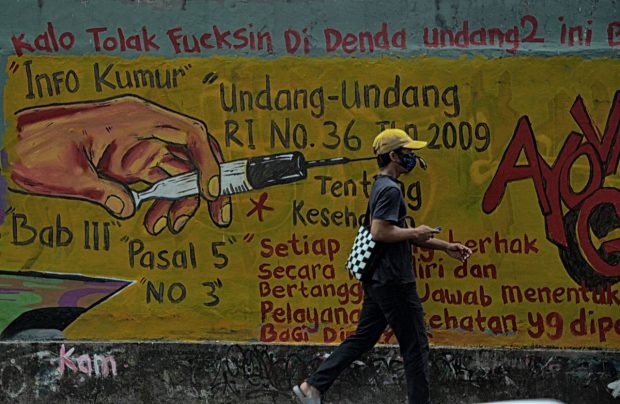 Kalo Tolak Fucksin Di Denda undang2 ini B
"Info Kumur"
"Undang-Undang
RI No. 36 2009
Tentang
Kesehatan
"Bab III"
"Pasal 5"
"NO 3"
"Setiap berhak
secara dan
Bertanggung Jawab
Pelayanan yg
Bagi
AYO
Kam